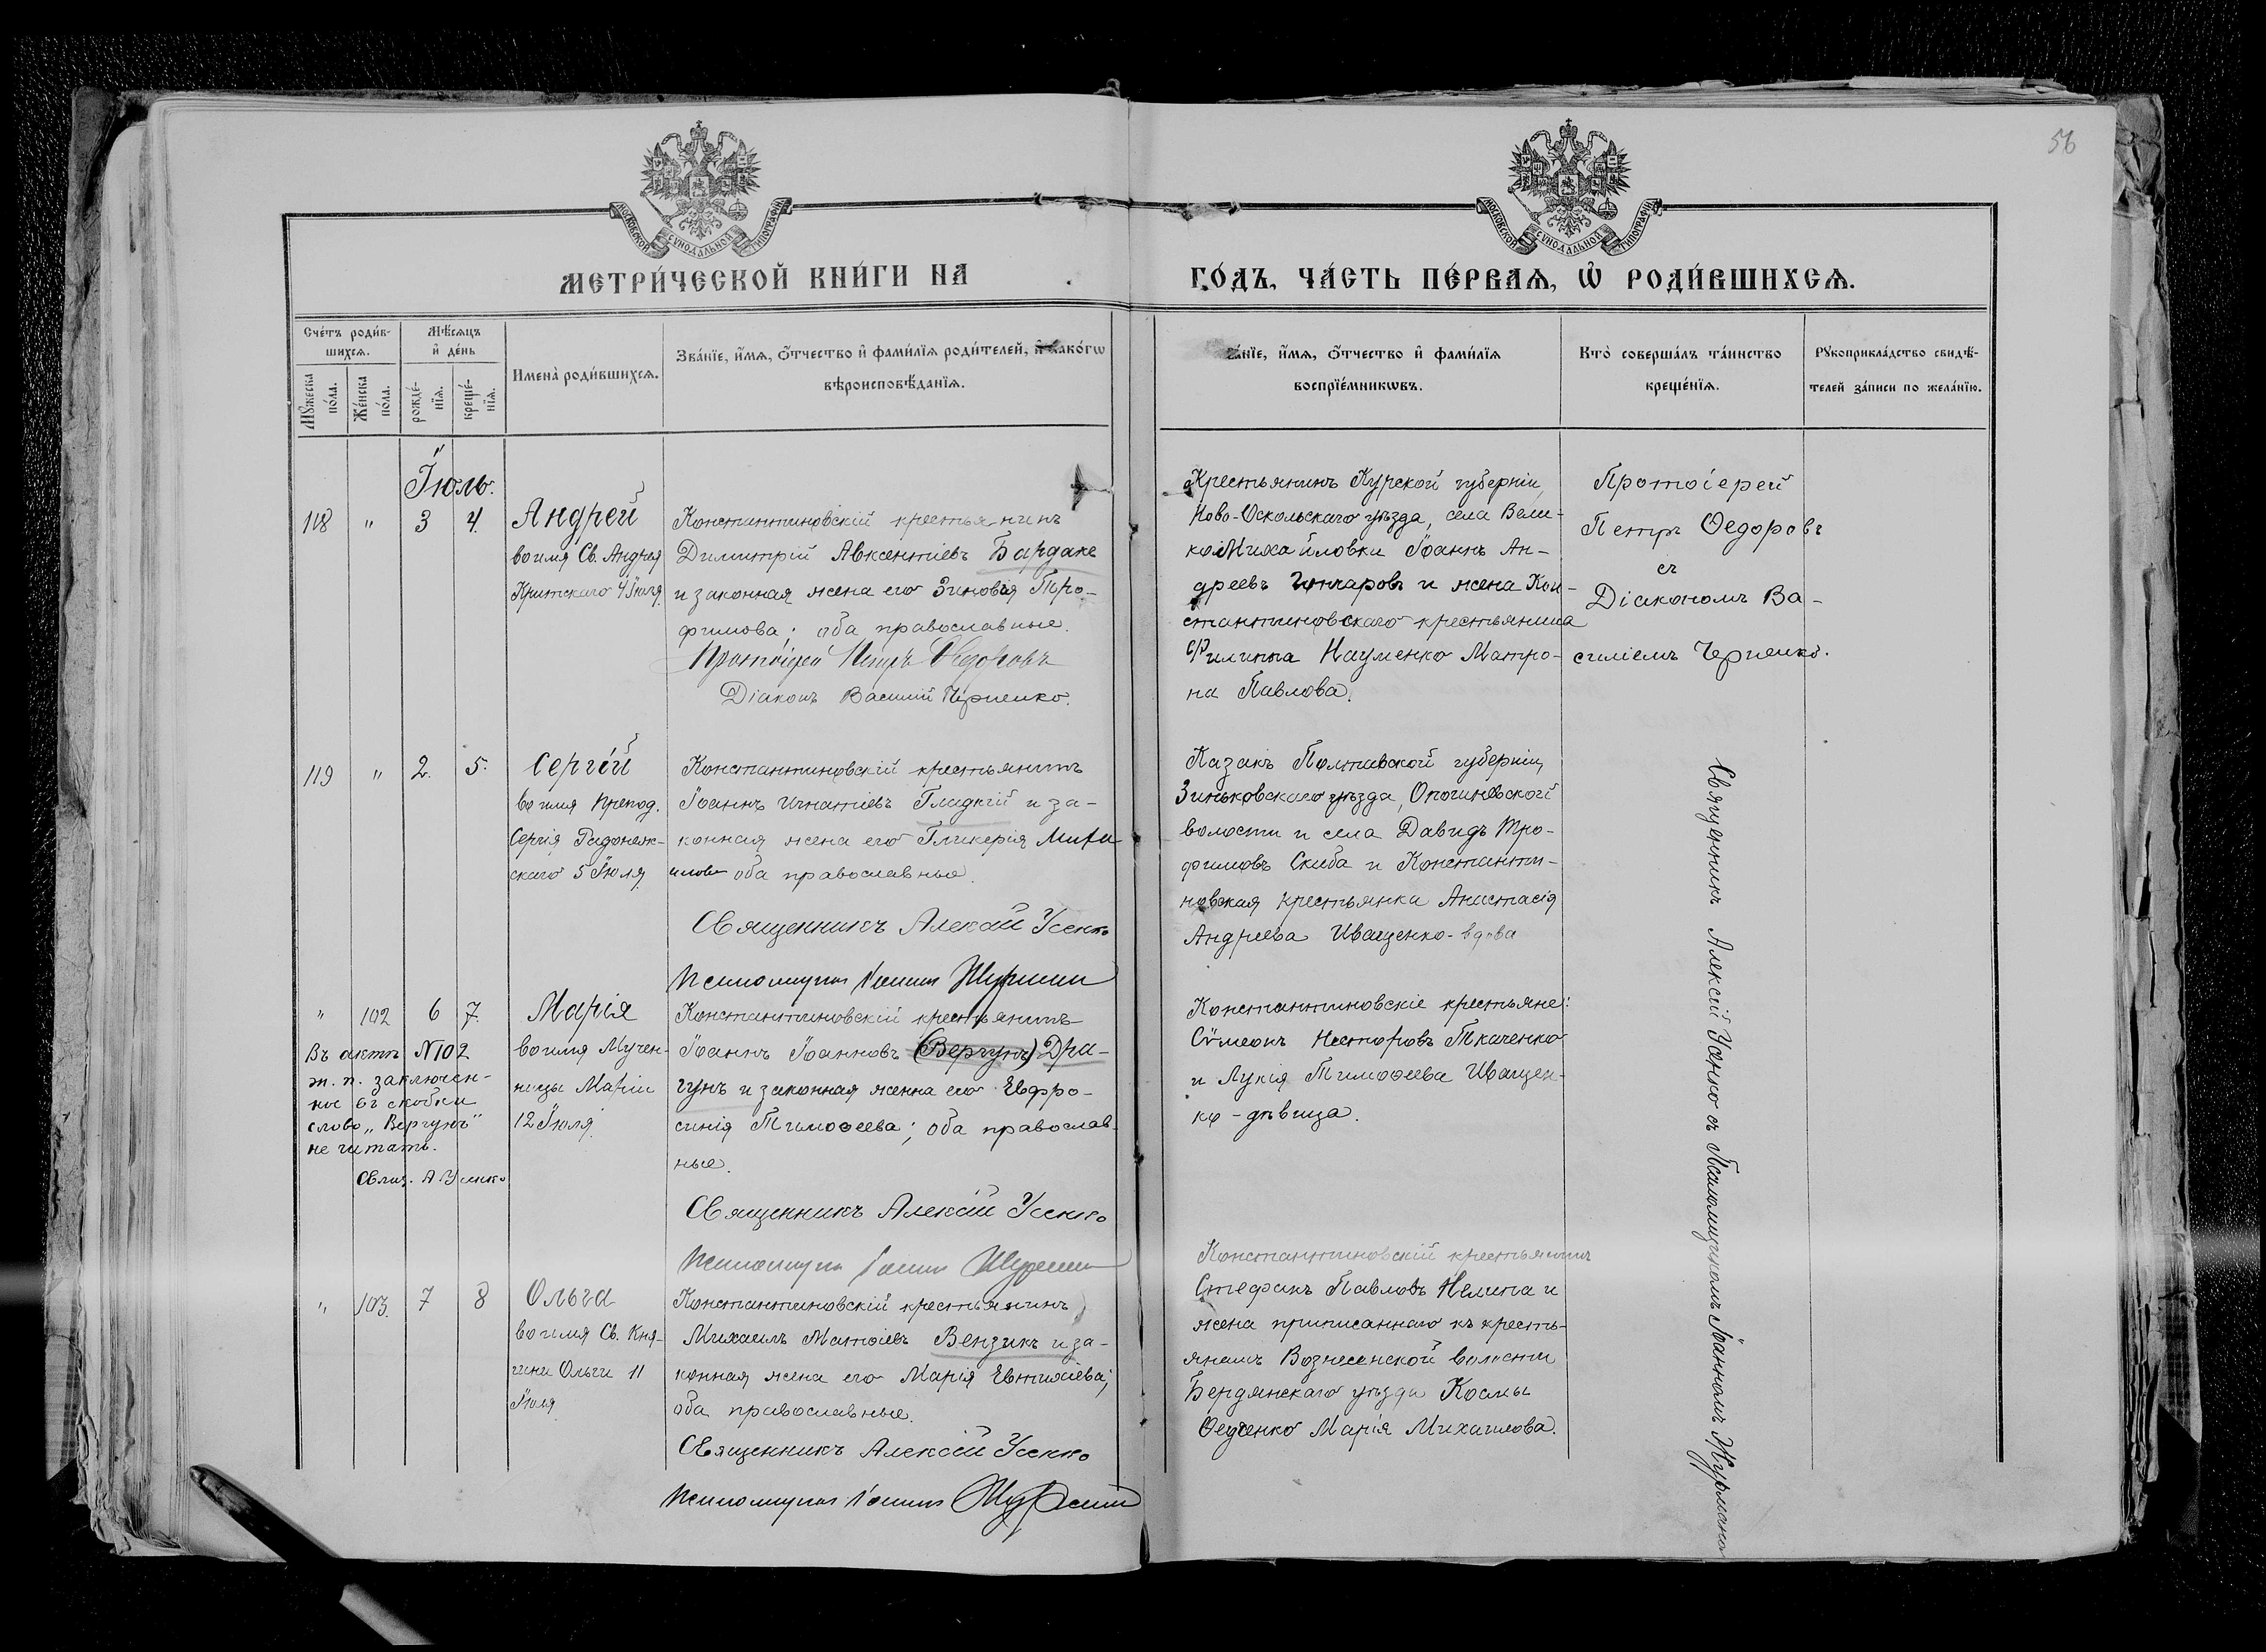 56
МОСКОВСКОЙ СѴНОДАЛЬНОЙ ТИПОГРАФІИ
МОСКОВСКОЙ СѴНОДАЛЬНОЙ ТИПОГРАФІИ
МЕТРИ́ЧЕСКОЙ КНИ́ГИ НА
ГО́ДЪ, ЧА́СТЬ ПЕ́РВАѦ, Ѽ РОДИ́ВШИХСѦ.
Сче́тъ роди́в-
шихсѧ.
Мꙋжеска
по́ла.
Же́нска
по́ла.
Мѣ́сѧцъ
и҆ де́нь
рожде́-
нїѧ.
креще́-
нїѧ.
Имена̀ роди́вшихсѧ.
Зва́нїе, и҆́мѧ, ѻ҆́тчество и҆ фами́лїѧ роди́телей, и҆ како́гѡ
вѣроисповѣ́данїѧ.
а́нїе, и҆́мѧ, ѻ҆́тчество и҆ фами́лїѧ
воспрїе́мникѡвъ.
Кто̀ соверша́лъ та́инство
креще́нїѧ.
Рꙋкоприкла́дство свидѣ́-
телей за́писи по жела́нїю.
Іюль.
118 " 3 4.
Андрей
во имя Св. Андрея
Критскаго 4 Іюля
Константиновскій крестьянинъ
Димитрій Авксентіевъ Бардаке
и законная жена его Зиновія Тро-
фимова; оба православные.
Протоіерей Петръ Ѳедоровъ
Діаконъ Василий Черненко.
Крестьянинъ Курской губерніи,
Ново-Оскольскаго уѣзда, села Вели-
коМихайловки Іоаннъ Ан-
дреевъ Гончаровъ и жена Кон-
стантиновскаго крестьянина
Филиппа Науменко Матро-
на Павлова.
Протоіерей
Петръ Ѳедоровъ
съ
Діакономъ Ва-
силіемъ Черненко.
119 " 2. 5.
Сергій
во имя Препод.
Сергія Радонеж-
скаго 5 Іюля
Константиновскій крестьянинъ
Іоаннъ Игнатіевъ Гладкій и за-
конная жена его Гликерія Миха
илова оба православные.
Священникъ Алексій Усенко
Псаломщикъ Іоаннъ
Казакъ Полтавской губерніи,
Зиньковскаго уѣзда, Опошнянской
волости и села Давидъ Тро-
фимовъ Скиба и Константи-
новская крестьянка Анастасія
Андреева Иващенко-вдова
" 102 6 7.
Въ актѣ №102
ж. п. заключен-
ное въ скобки
слово „Вергунъ"
не читать.
Свящ. А Усенко
Марія
во имя Мучен-
ницы Маріи
12 Іюля
Константиновскій крестьянинъ
Іоаннъ Іоанновъ (Вергунъ) Дра-
гунъ и законная женна его Евфро-
синія Тимоѳеева; оба православ-
ные.
Священникъ Алексій Усенко
Псаломщикъ Іоаннъ
Константиновскіе крестьяне:
Сѵмеонъ Несторовъ Ткаченко
и Лукія Тимоѳеева Иващен-
ко-дѣвица.
" 103. 7 8
Ольга
во имя Св. Кня-
гини Ольги 11
Іюля
Константиновскій крестьянинъ
Михаилъ Матѳіевъ Вензикъ и за-
конная жена его Марія Евтихіева;
оба православные.
Священникъ Алексій Усенко
Псаломщикъ Іоаннъ
Константиновскій крестьянинъ
Стефанъ Павловъ Нелипа и
жена приписаннаго къ кресть-
янамъ Вознесенской волости
Бердянскаго уѣзда Космы
Ѳесенко Марія Михаилова.
Священникъ Алексій Усенко съ Псаломщикомъ Іоанномъ